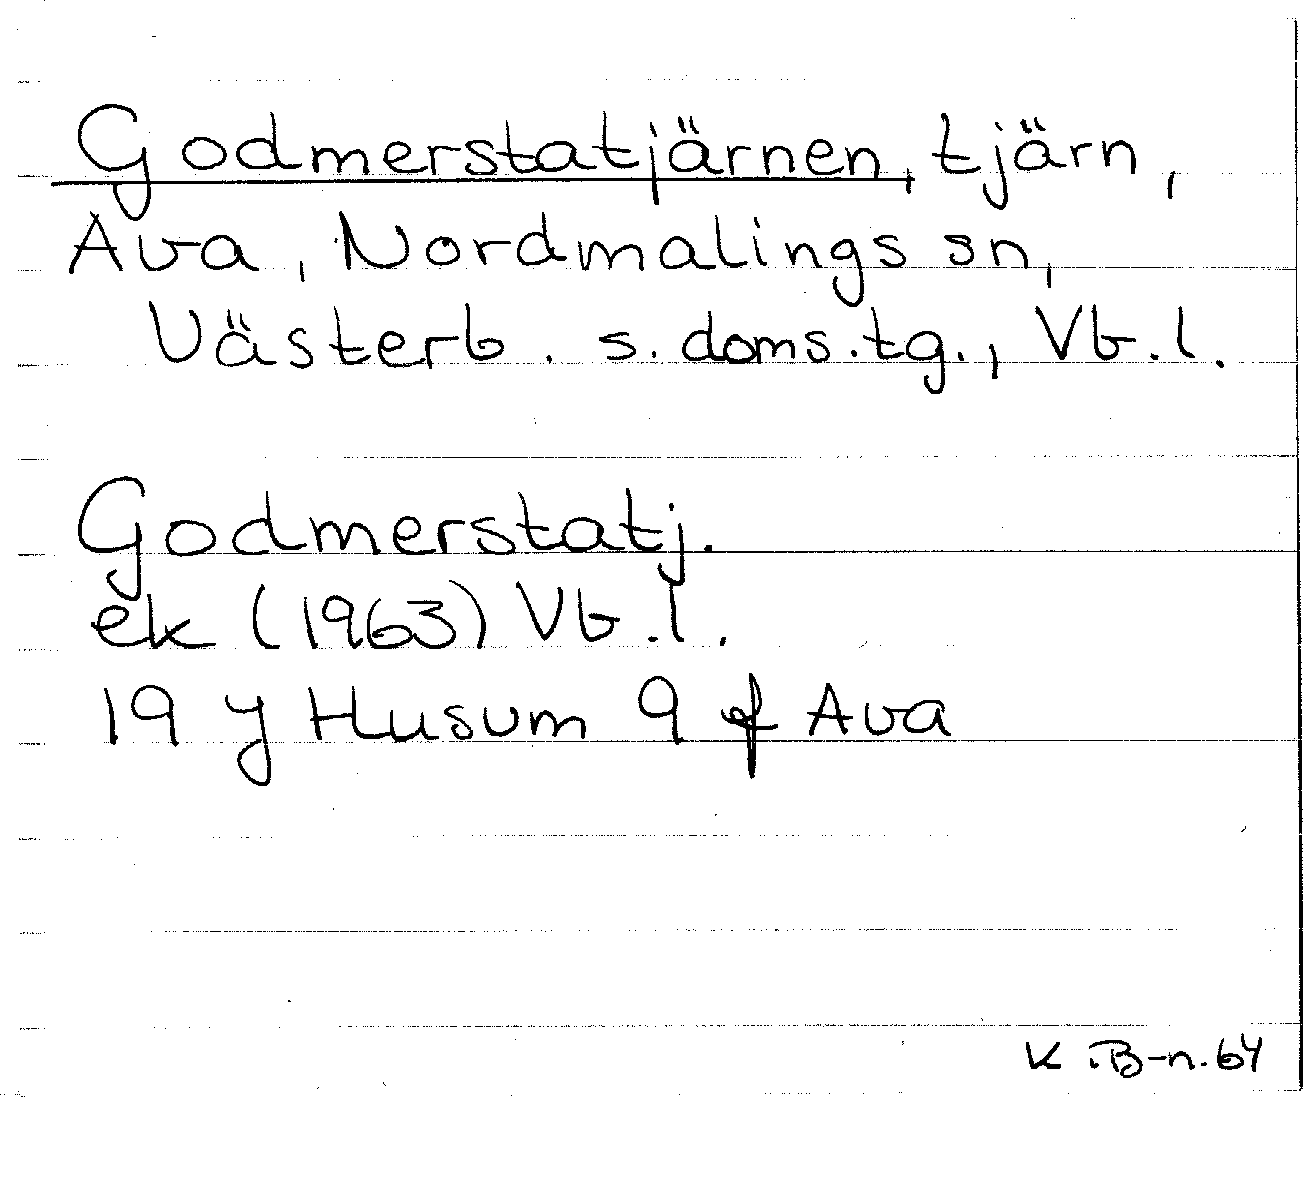 Godmerstatjärnen, tjärn,
Ava, Nordmalings sn,
Västerb. s. doms.tg., Vb.l.
Godmerstatj.
ek (1963) Vb.l.
19 y Husum 9 f Ava
K .B-n.64